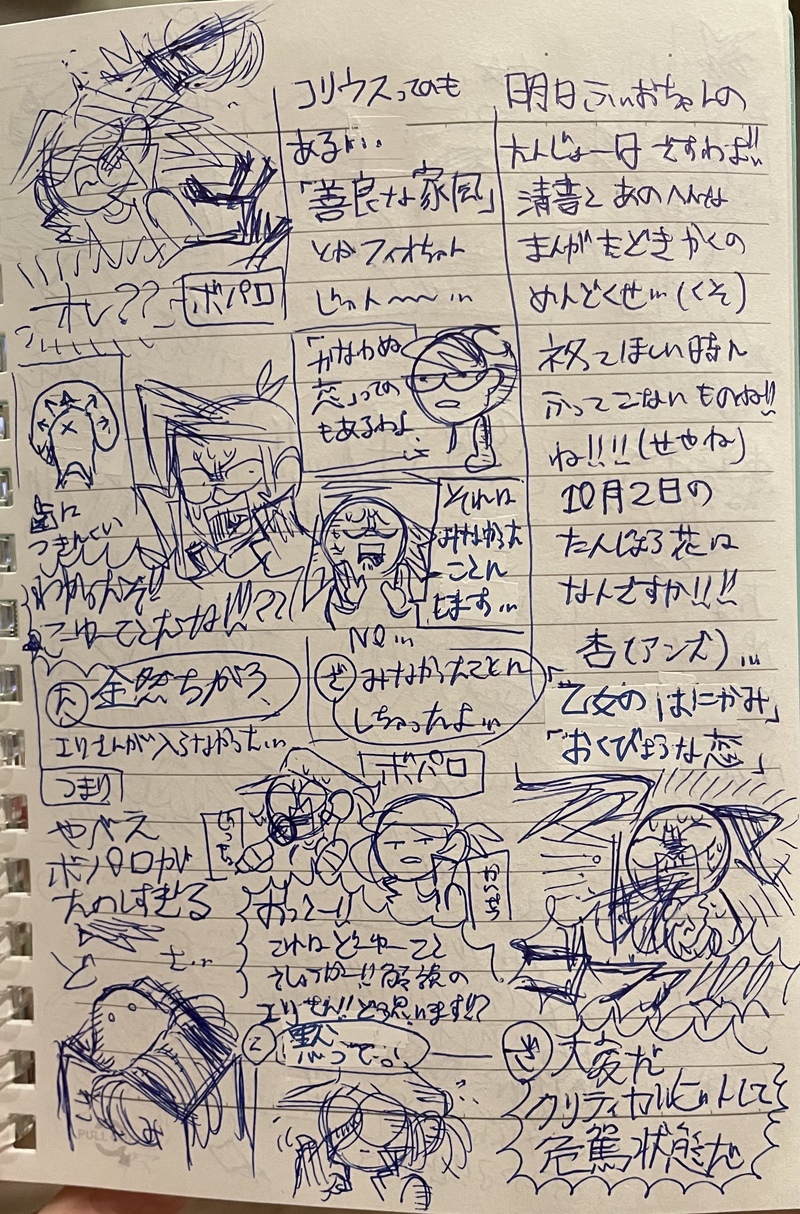 明日ふぃおちゃんの
たんじょー日ですわよ!!
清書とあのへんは
まんがもどきかくの
めんどくせぇ(くそ)
ネタってほしい時に
ふってこないものね!!
ね!!!(せやね)
10月2日の
たんじょう花は
なんですか!!!
杏(アンズ)
「乙女のはにかみ」
「おくびょうな恋」
大変だ
クリティカルヒットしてて
危篤状態だ
コリウスってのも
あるよ…
「善良な家風」
とかフィオちゃん
じゃん〜〜
「かなわぬ
恋」っての
もあるわよ
それは
みなかった
ことに
します
NO
みなかったことに
しちゃったよ
ボパロ
おっと…!!
これはどーゆーこと
でしょうかー!!解説の
エリさん!!どう思います!!?
黙って。
オレ??
ボパロ
歯に
つきにくい
わかるんぞ!!
こーゆーことだな!!!??
全然ちがう、
エリさんが入らなかった
つまり
やべえ
ボパロが
たのしすぎる
ど
ごみ